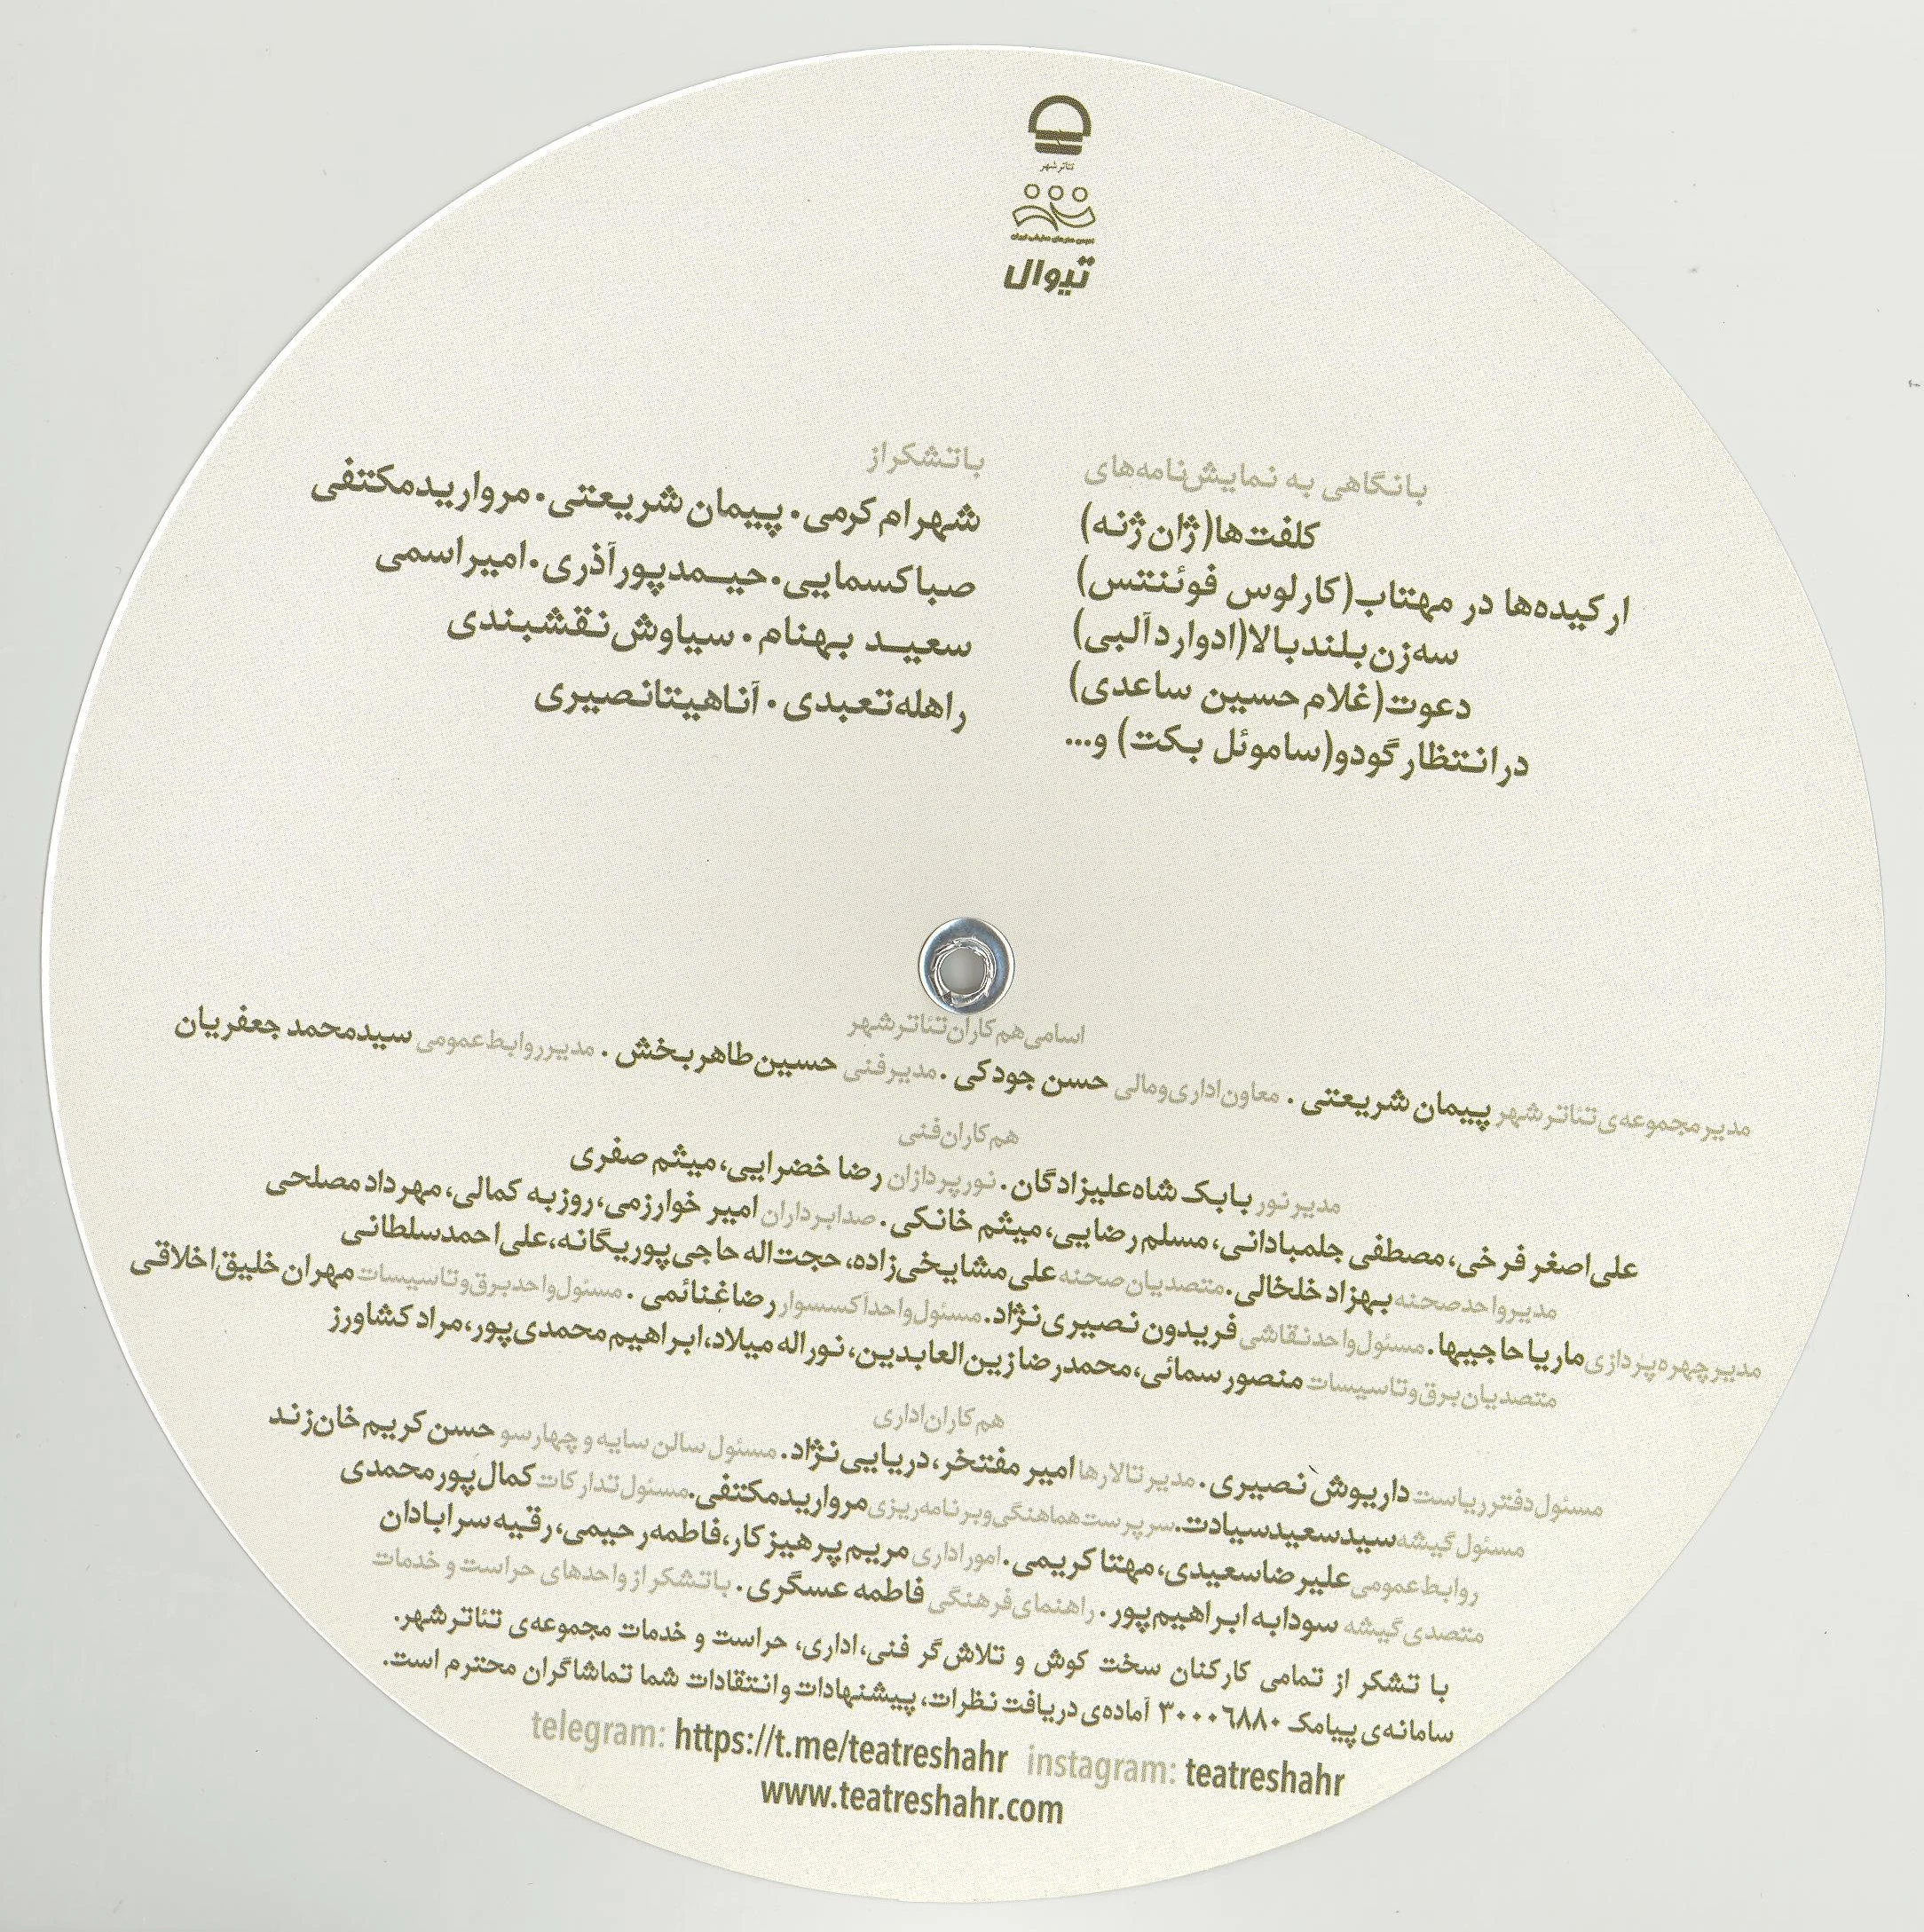 تئاتر شهر
انجمن هنرهای نمایشی ایران
تیوال
با نگاهی به نمایش‌نامه‌های
کلفت‌ها (ژان ژنه)
ارکیده‌ها در مهتاب (کارلوس فوئنتس)
سه زن بلندبالا (ادوارد آلبی)
دعوت (غلام حسین ساعدی)
در انتظار گودو (ساموئل بکت) و...
با تشکر از
شهرام کرمی . پیمان شریعتی . مروارید مکتفی
صبا کسمایی . حیمد پورآذری . امیر اسمی
سعید بهنام . سیاوش نقشبندی
راهله تعبدی . آناهیتا نصیری
اسامی هم‌کاران تئاتر شهر
مدیر مجموعه‌ی تئاتر شهر پیمان شریعتی . معاون اداری و مالی حسن جودکی . مدیر فنی حسین طاهربخش . مدیر روابط عمومی سیدمحمد جعفریان
هم‌کاران فنی
مدیر نور بابک شاه‌علیزادگان . نورپردازان رضا خضرایی، میثم صفری
علی‌اصغر فرخی، مصطفی جلمبادانی، مسلم رضایی، میثم خانکی . صدابرداران امیر خوارزمی، روزبه کمالی، مهرداد مصلحی
مدیر واحد صحنه بهزاد خلخالی . متصدیان صحنه علی مشایخی‌زاده، حجت‌اله حاجی‌پوریگانه، علی احمدسلطانی
مدیر چهره‌پردازی ماریا حاجیها . مسئول واحد نقاشی فریدون نصیری‌نژاد . مسئول واحد آکسسوار رضا غنائمی . مسئول واحد برق و تاسیسات مهران خلیق‌اخلاقی
متصدیان برق و تاسیسات منصور سمائی، محمدرضا زین‌العابدین، نوراله میلاد، ابراهیم محمدی‌پور، مراد کشاورز
هم‌کاران اداری
مسئول دفتر ریاست داریوش نصیری . مدیر تالارها امیر مفتخر، دریایی‌نژاد . مسئول سالن سایه و چهارسو حسن کریم خان‌زند
مسئول گیشه سیدسعید سیادت . سرپرست هماهنگی و برنامه‌ریزی مروارید مکتفی . مسئول تدارکات کمال پورمحمدی
روابط عمومی علیرضا سعیدی، مهتا کریمی . امور اداری مریم پرهیزکار، فاطمه رحیمی، رقیه سرابادان
متصدی گیشه سودابه ابراهیم‌پور . راهنمای فرهنگی فاطمه عسگری . با تشکر از واحدهای حراست و خدمات
با تشکر از تمامی کارکنان سخت کوش و تلاش‌گر فنی، اداری، حراست و خدمات مجموعه‌ی تئاتر شهر.
سامانه‌ی پیامک ۳۰۰۰۶۸۸۰ آماده‌ی دریافت نظرات، پیشنهادات و انتقادات شما تماشاگران محترم است.
telegram: https://t.me/teatreshahr instagram: teatreshahr
www.teatreshahr.com